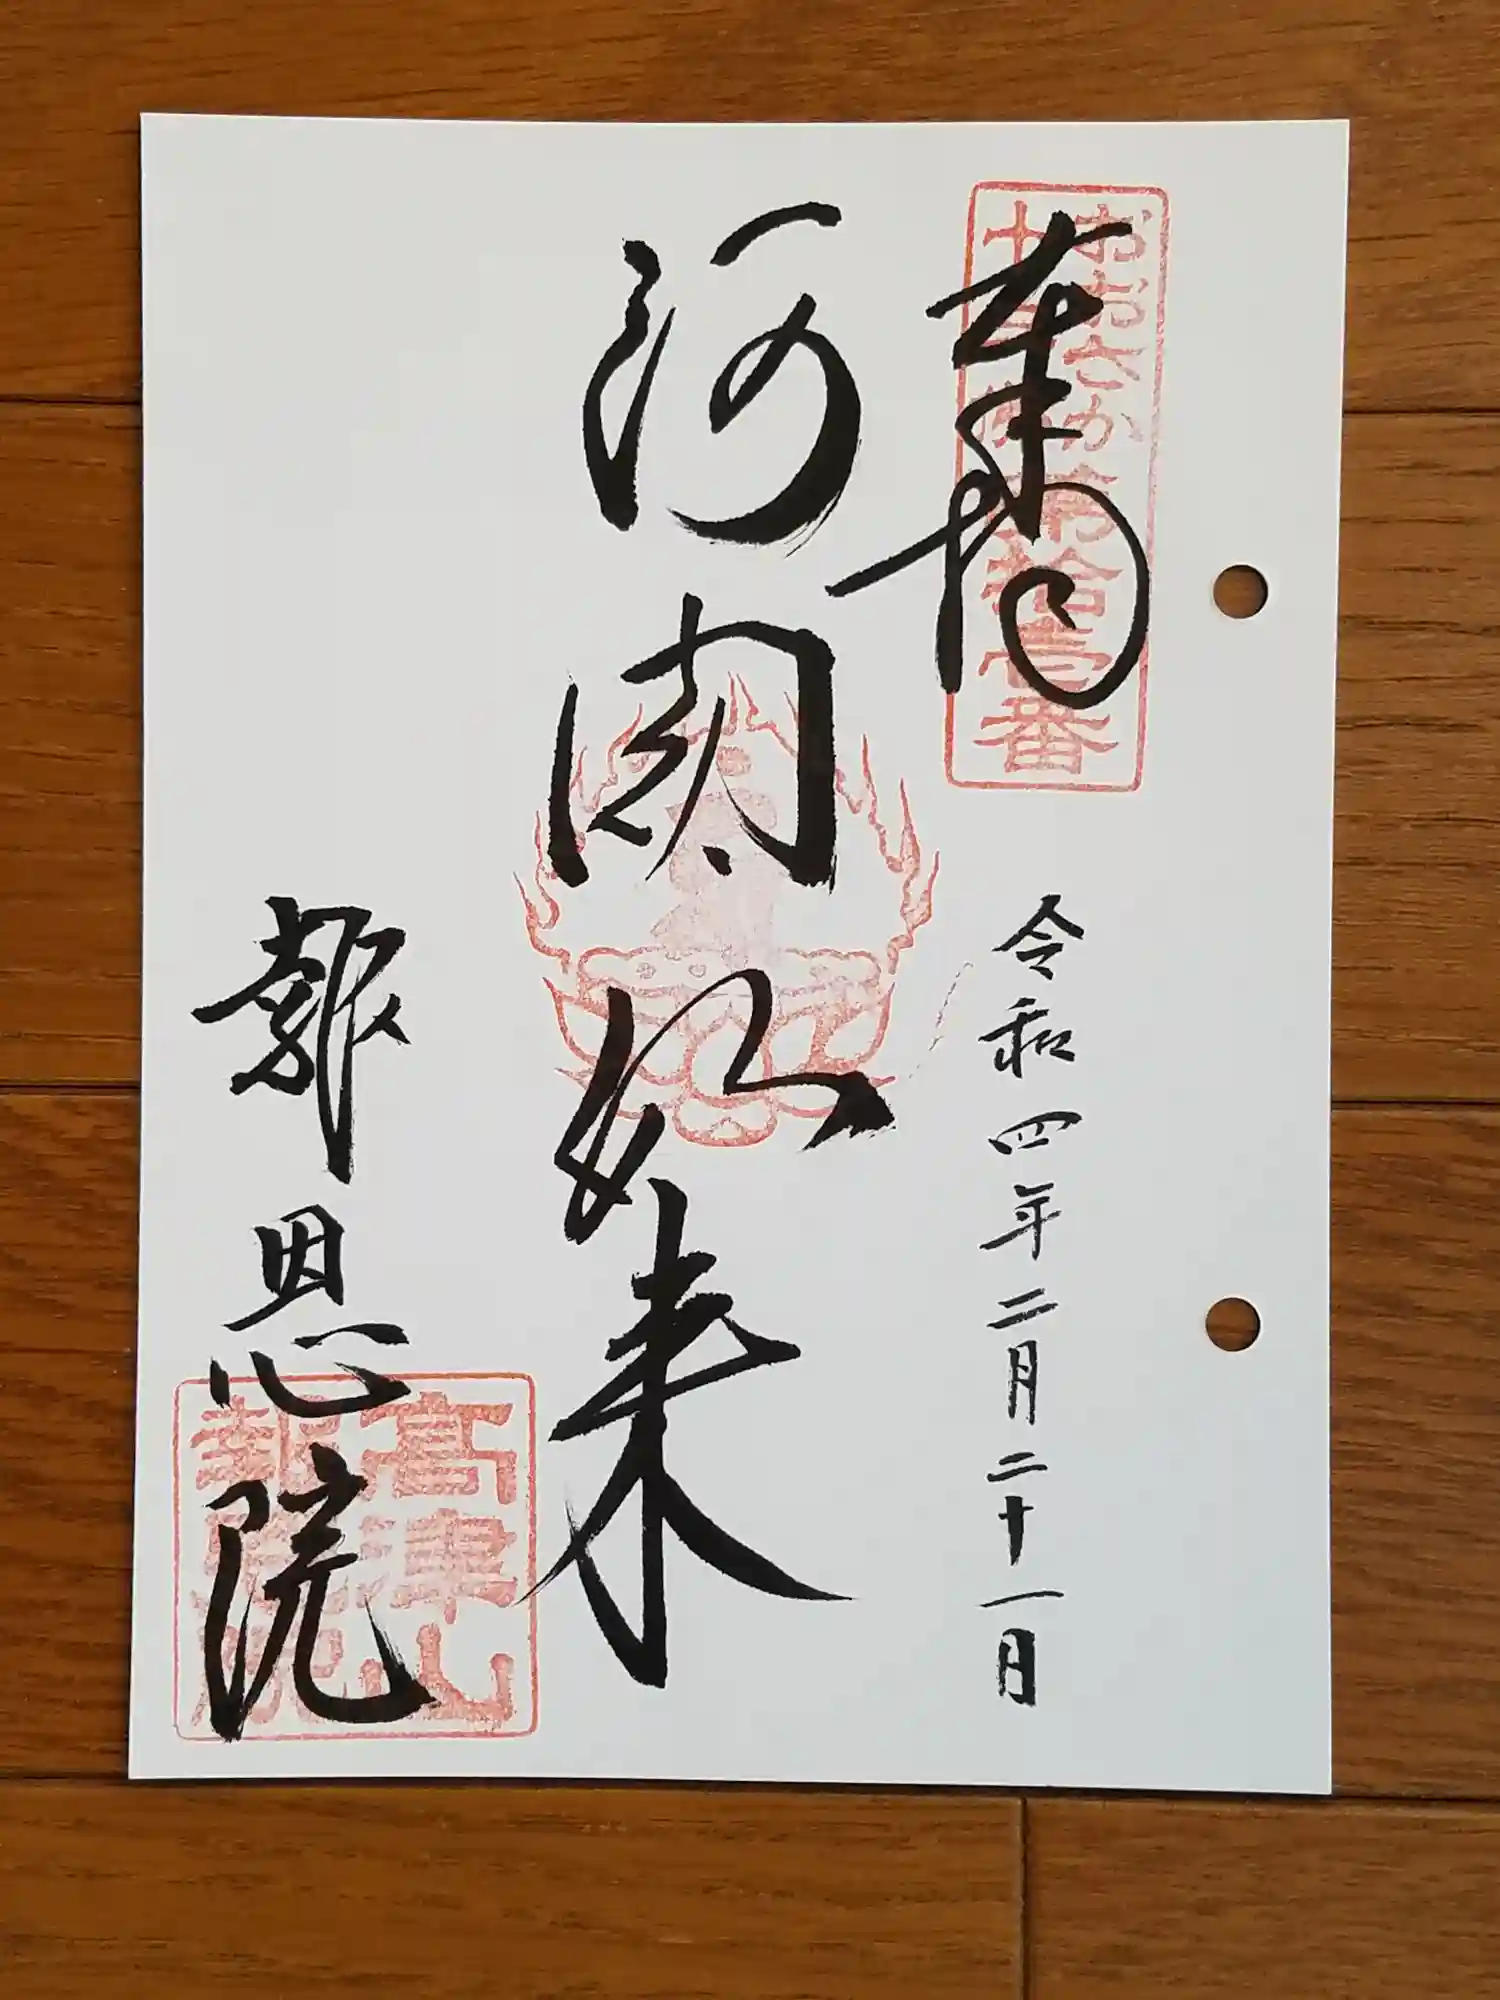 おおさか
十三佛
第拾壹番
奉拝
令和四年二月二十一日
阿閦如来
報恩院
高津山
報恩院